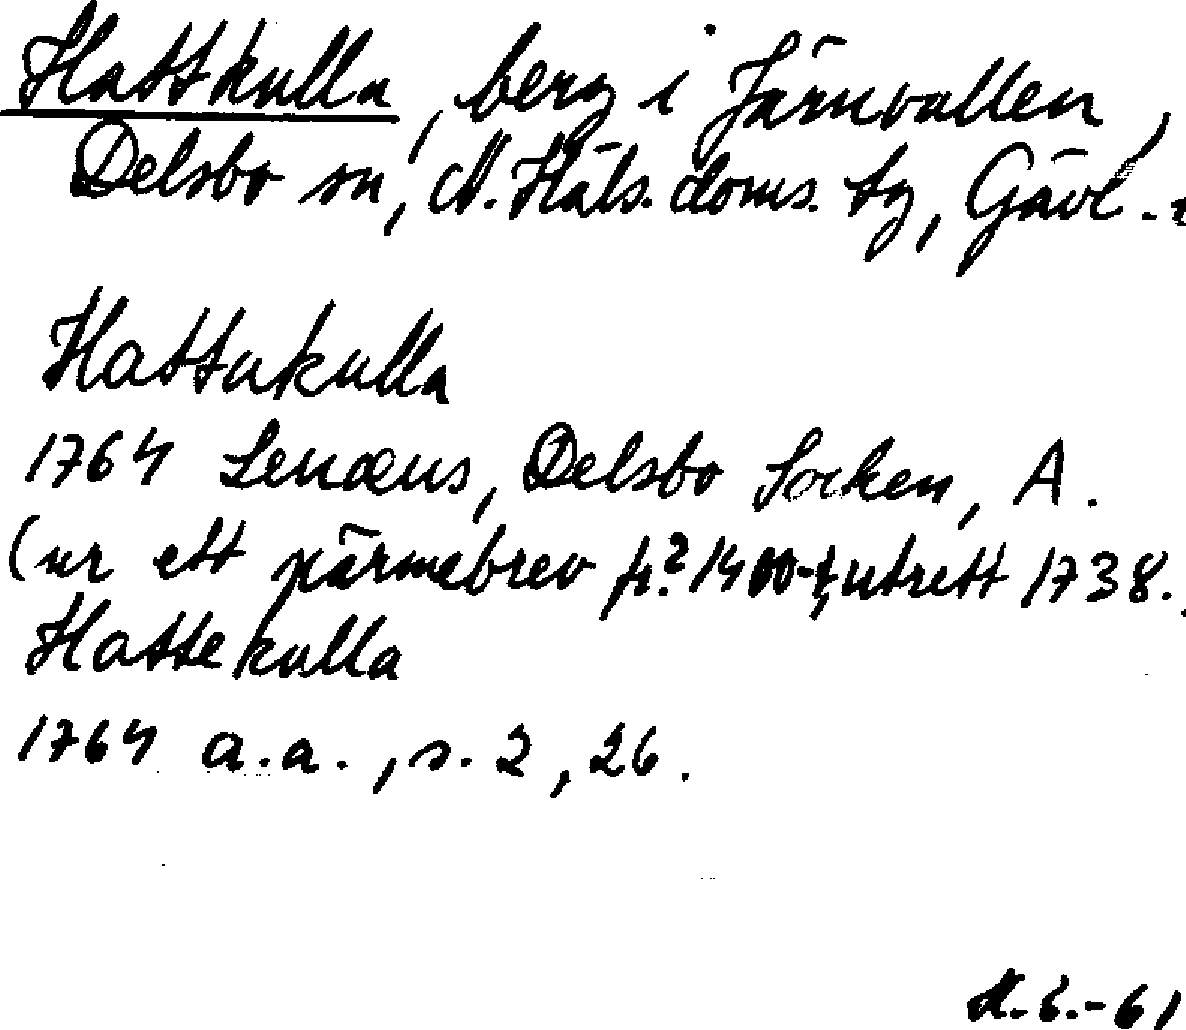 Hattkulla, berg i Järnvallen,
Delsbo sn, N. Häls. doms. tg, Gävl.
Hattukulla
1764 Lenæus, Delsbo Socken, A.
(ur ett pärmebrev fr. 1400-t, utrett 1738.
Hattekulla
1764 a.a., s. 2, 26.
-61